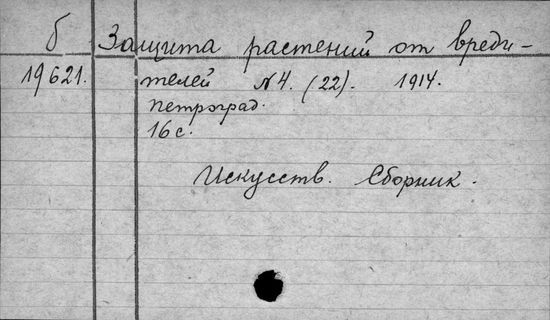 б Защита растений от вреди-
19621. телей №4. (22). 1914.
Петроград.
16 с.
Искусств. Сборник.